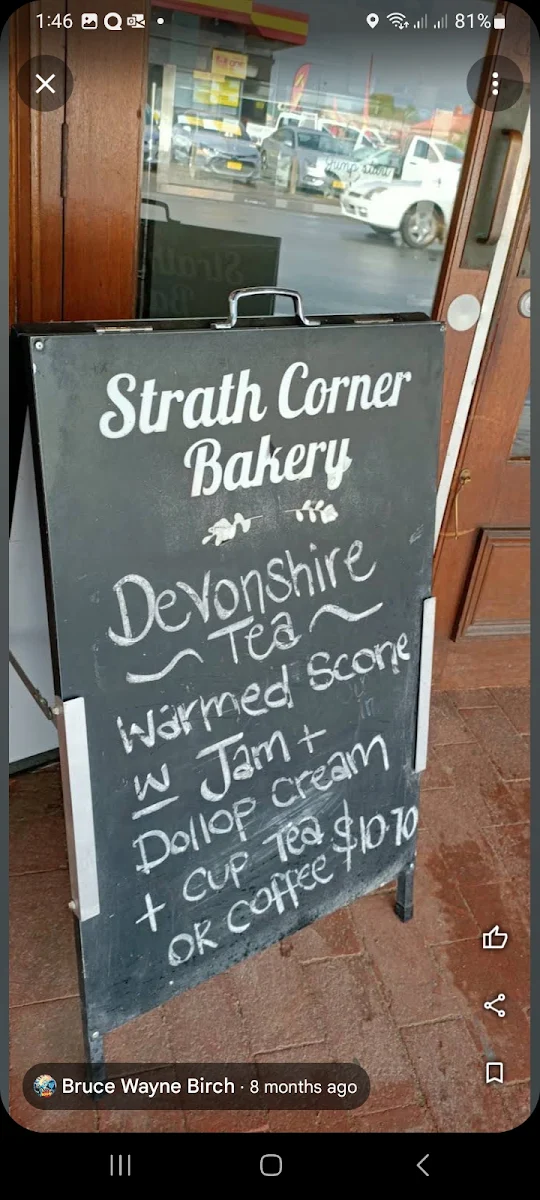 1:46
81%
Jump start
Strath Corner
Bakery
Devonshire
Tea
Warmed Scone
w Jam +
Dollop Cream
+ Cup Tea $10.70
OR Coffee
Bruce Wayne Birch · 8 months ago